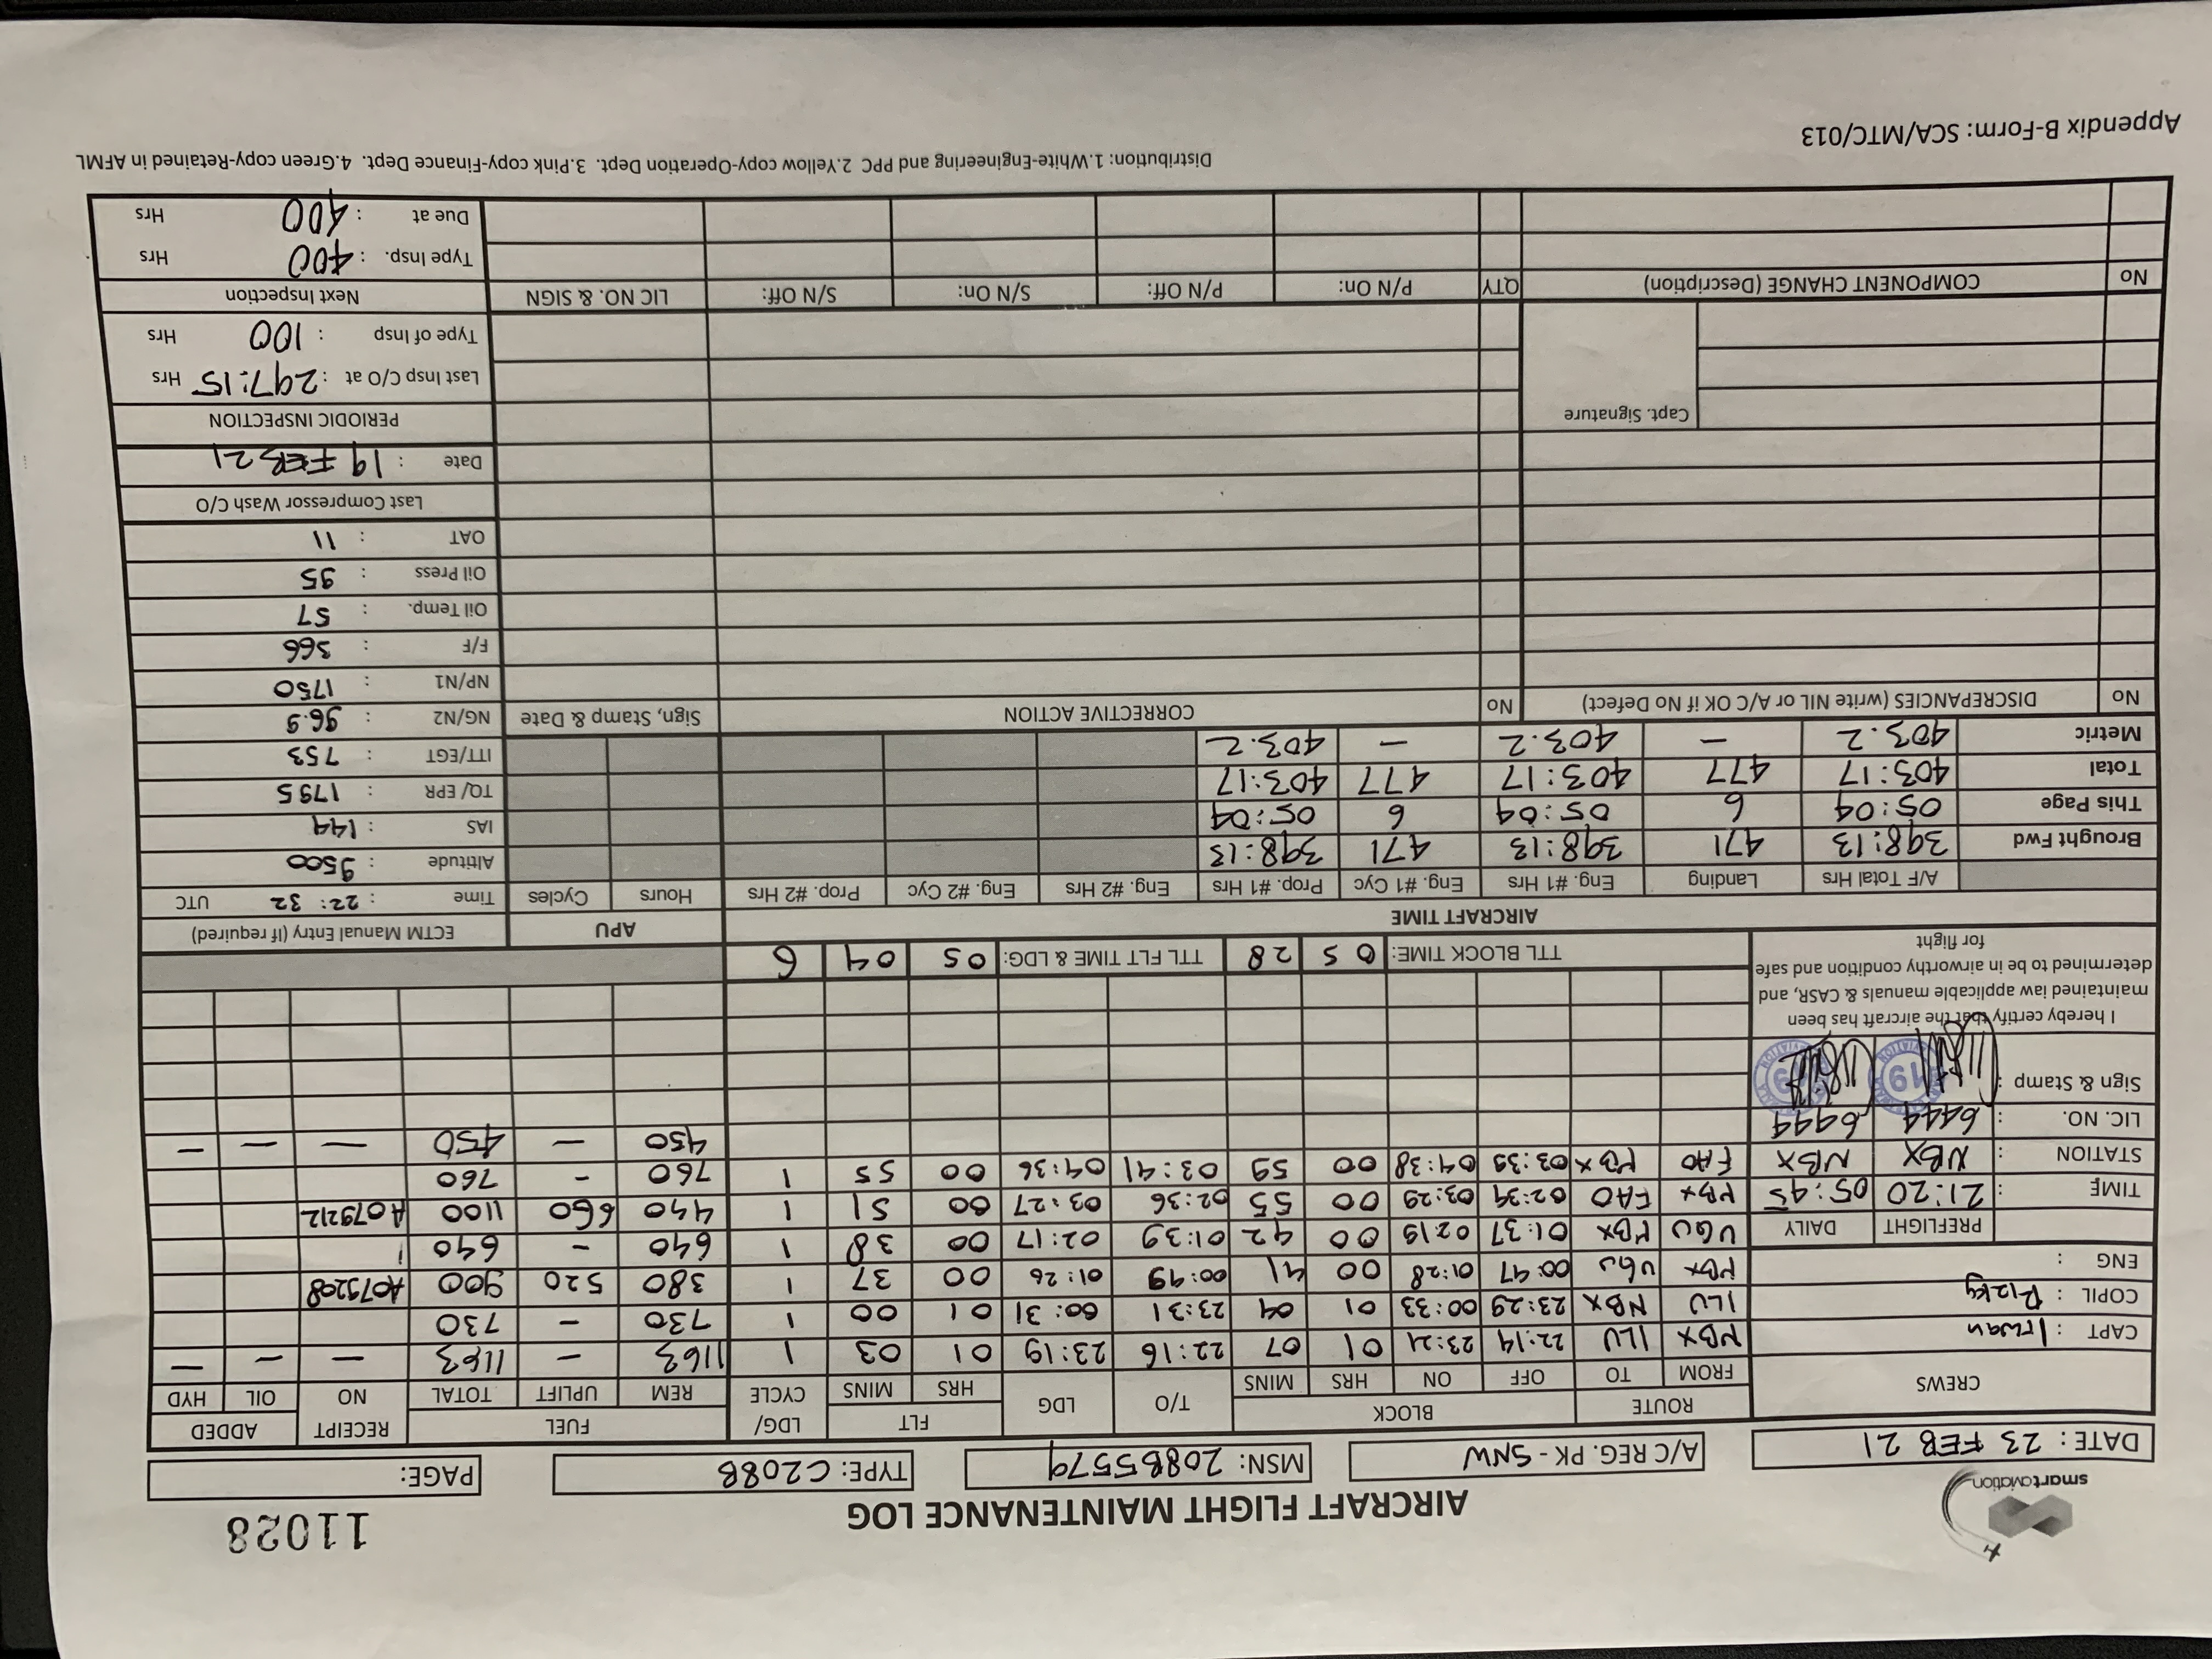 smartaviation
AIRCRAFT FLIGHT MAINTENANCE LOG
11028
DATE: 23 FEB 21
A/C REG. PK - SNW
MSN: 208B5579
TYPE: C208B
PAGE:
CREWS ROUTE BLOCK T/O LDG FLT LDG/ CYCLE FUEL RECEIPT NO ADDED
FROM TO OFF ON HRS MINS HRS MINS REM UPLIFT TOTAL OIL HYD
CAPT : Irwan
COPIL : Rizky
ENG :
NBX ILU 22:14 23:21 01 07 22:16 23:19 01 03 1 1163 – 1163 – – –
ILU NBX 23:29 00:33 01 04 23:31 00:31 01 00 1 730 – 730
NBX UGU 00:47 01:28 00 41 00:49 01:26 00 37 1 380 520 900 A079208
UGU NBX 01:37 02:19 00 42 01:39 02:17 00 38 1 640 – 640
NBX FAO 02:34 03:29 00 55 02:36 03:27 00 51 1 440 660 1100 A079212
FAO NBX 03:39 04:38 00 59 03:41 04:36 00 55 1 760 - 760
450 – 450 – – –
PREFLIGHT DAILY
TIME : 21:20 05:45
STATION : NBX NBX
LIC. NO. : 6444 6444
Sign & Stamp :
19
I hereby certify that the aircraft has been
maintained iaw applicable manuals & CASR, and
determined to be in airworthy condition and safe
for flight
TTL BLOCK TIME: 05 28 TTL FLT TIME & LDG: 05 04 6
AIRCRAFT TIME APU
A/F Total Hrs Landing Eng. #1 Hrs Eng. #1 Cyc Prop. #1 Hrs Eng. #2 Hrs Eng. #2 Cyc Prop. #2 Hrs Hours Cycles
Brought Fwd 398:13 471 398:13 471 398:13
This Page 05:04 6 05:04 6 05:04
Total 403:17 477 403:17 477 403:17
Metric 403.2 – 403.2 – 403.2
ECTM Manual Entry (If required)
Time : 22:32 UTC
Altitude : 9500
IAS : 144
TQ/ EPR : 1795
ITT/EGT : 753
NG/N2 : 96.9
NP/N1 : 1750
F/F : 366
Oil Temp. : 57
Oil Press : 95
OAT : 11
Last Compressor Wash C/O
Date : 19 FEB 21
PERIODIC INSPECTION
Last Insp C/O at : 297:15 Hrs
Type of Insp : 100 Hrs
Next Inspection
Type Insp. : 400 Hrs
Due at : 400 Hrs
No DISCREPANCIES (write NIL or A/C OK if No Defect) No CORRECTIVE ACTION Sign, Stamp & Date
Capt. Signature
No COMPONENT CHANGE (Description) QTY P/N On: P/N Off: S/N On: S/N Off: LIC NO. & SIGN
Distribution: 1.White-Engineering and PPC 2.Yellow copy-Operation Dept. 3.Pink copy-Finance Dept. 4.Green copy-Retained in AFML
Appendix B-Form: SCA/MTC/013